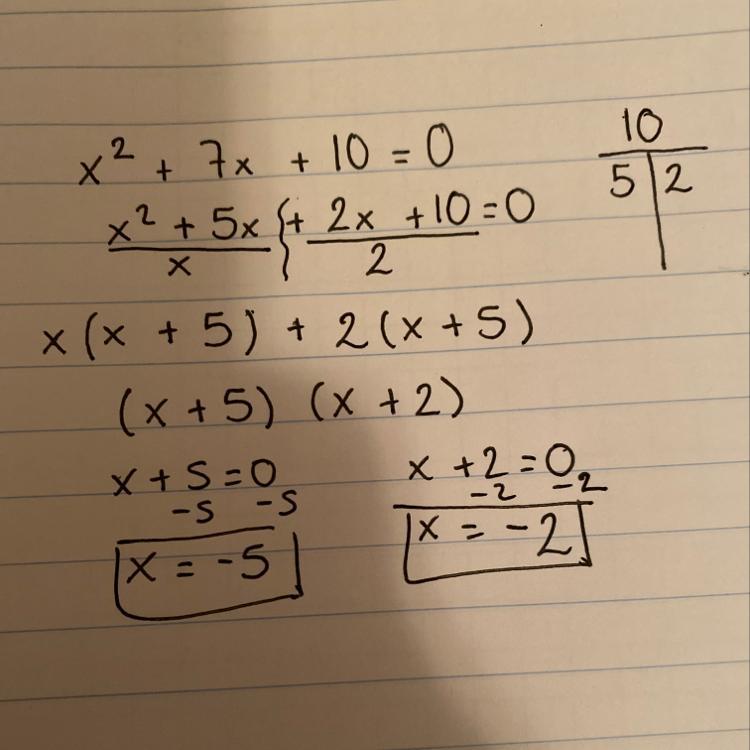 x² + 7x + 10 = 0
10
5 | 2
x² + 5x { + 2x + 10 = 0
x 2
x(x + 5) + 2(x + 5)
(x + 5) (x + 2)
x + 5 = 0 x + 2 = 0
-5 -5 -2 -2
x = -5 x = -2